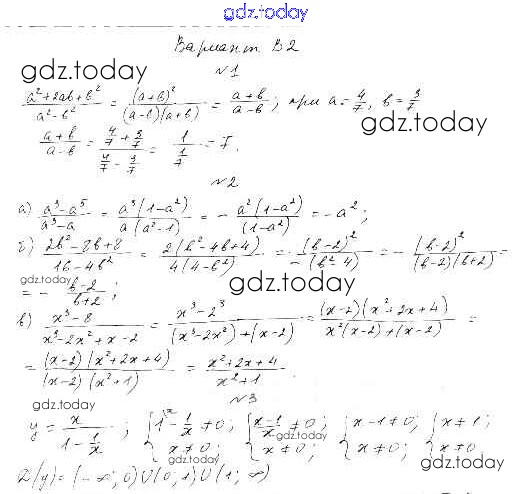 gdz.today
Вариант В2
gdz.today
№1
(a²+2ab+b²)/(a²-b²) = (a+b)²/((a-b)(a+b)) = (a+b)/(a-b); при a=4/7, b=3/7
gdz.today
(a+b)/(a-b) = (4/7+3/7)/(4/7-3/7) = 1/(1/7) = 7.
№2
а) (a³-a⁵)/(a³-a) = a³(1-a²)/(a(a²-1)) = - a²(1-a²)/(1-a²) = -a²;
б) (2b²-8b+8)/(16-4b²) = 2(b²-4b+4)/(4(4-b²)) = - (b-2)²/(b²-4) = - (b-2)²/((b-2)(b+2)) =
gdz.today
gdz.today
= - (b-2)/(b+2);
в) (x³-8)/(x³-2x²+x-2) = (x³-2³)/((x³-2x²)+(x-2)) = (x-2)(x²+2x+4)/(x²(x-2)+(x-2)) =
= (x-2)(x²+2x+4)/((x-2)(x²+1)) = (x²+2x+4)/(x²+1).
gdz.today
№3
y = x/(1-1/x); {1-1/x≠0; x≠0; {(x-1)/x≠0; x≠0; {x-1≠0; x≠0; {x≠1; x≠0
gdz.today
gdz.today
D(y)=(-∞;0)U(0;1)U(1;∞)